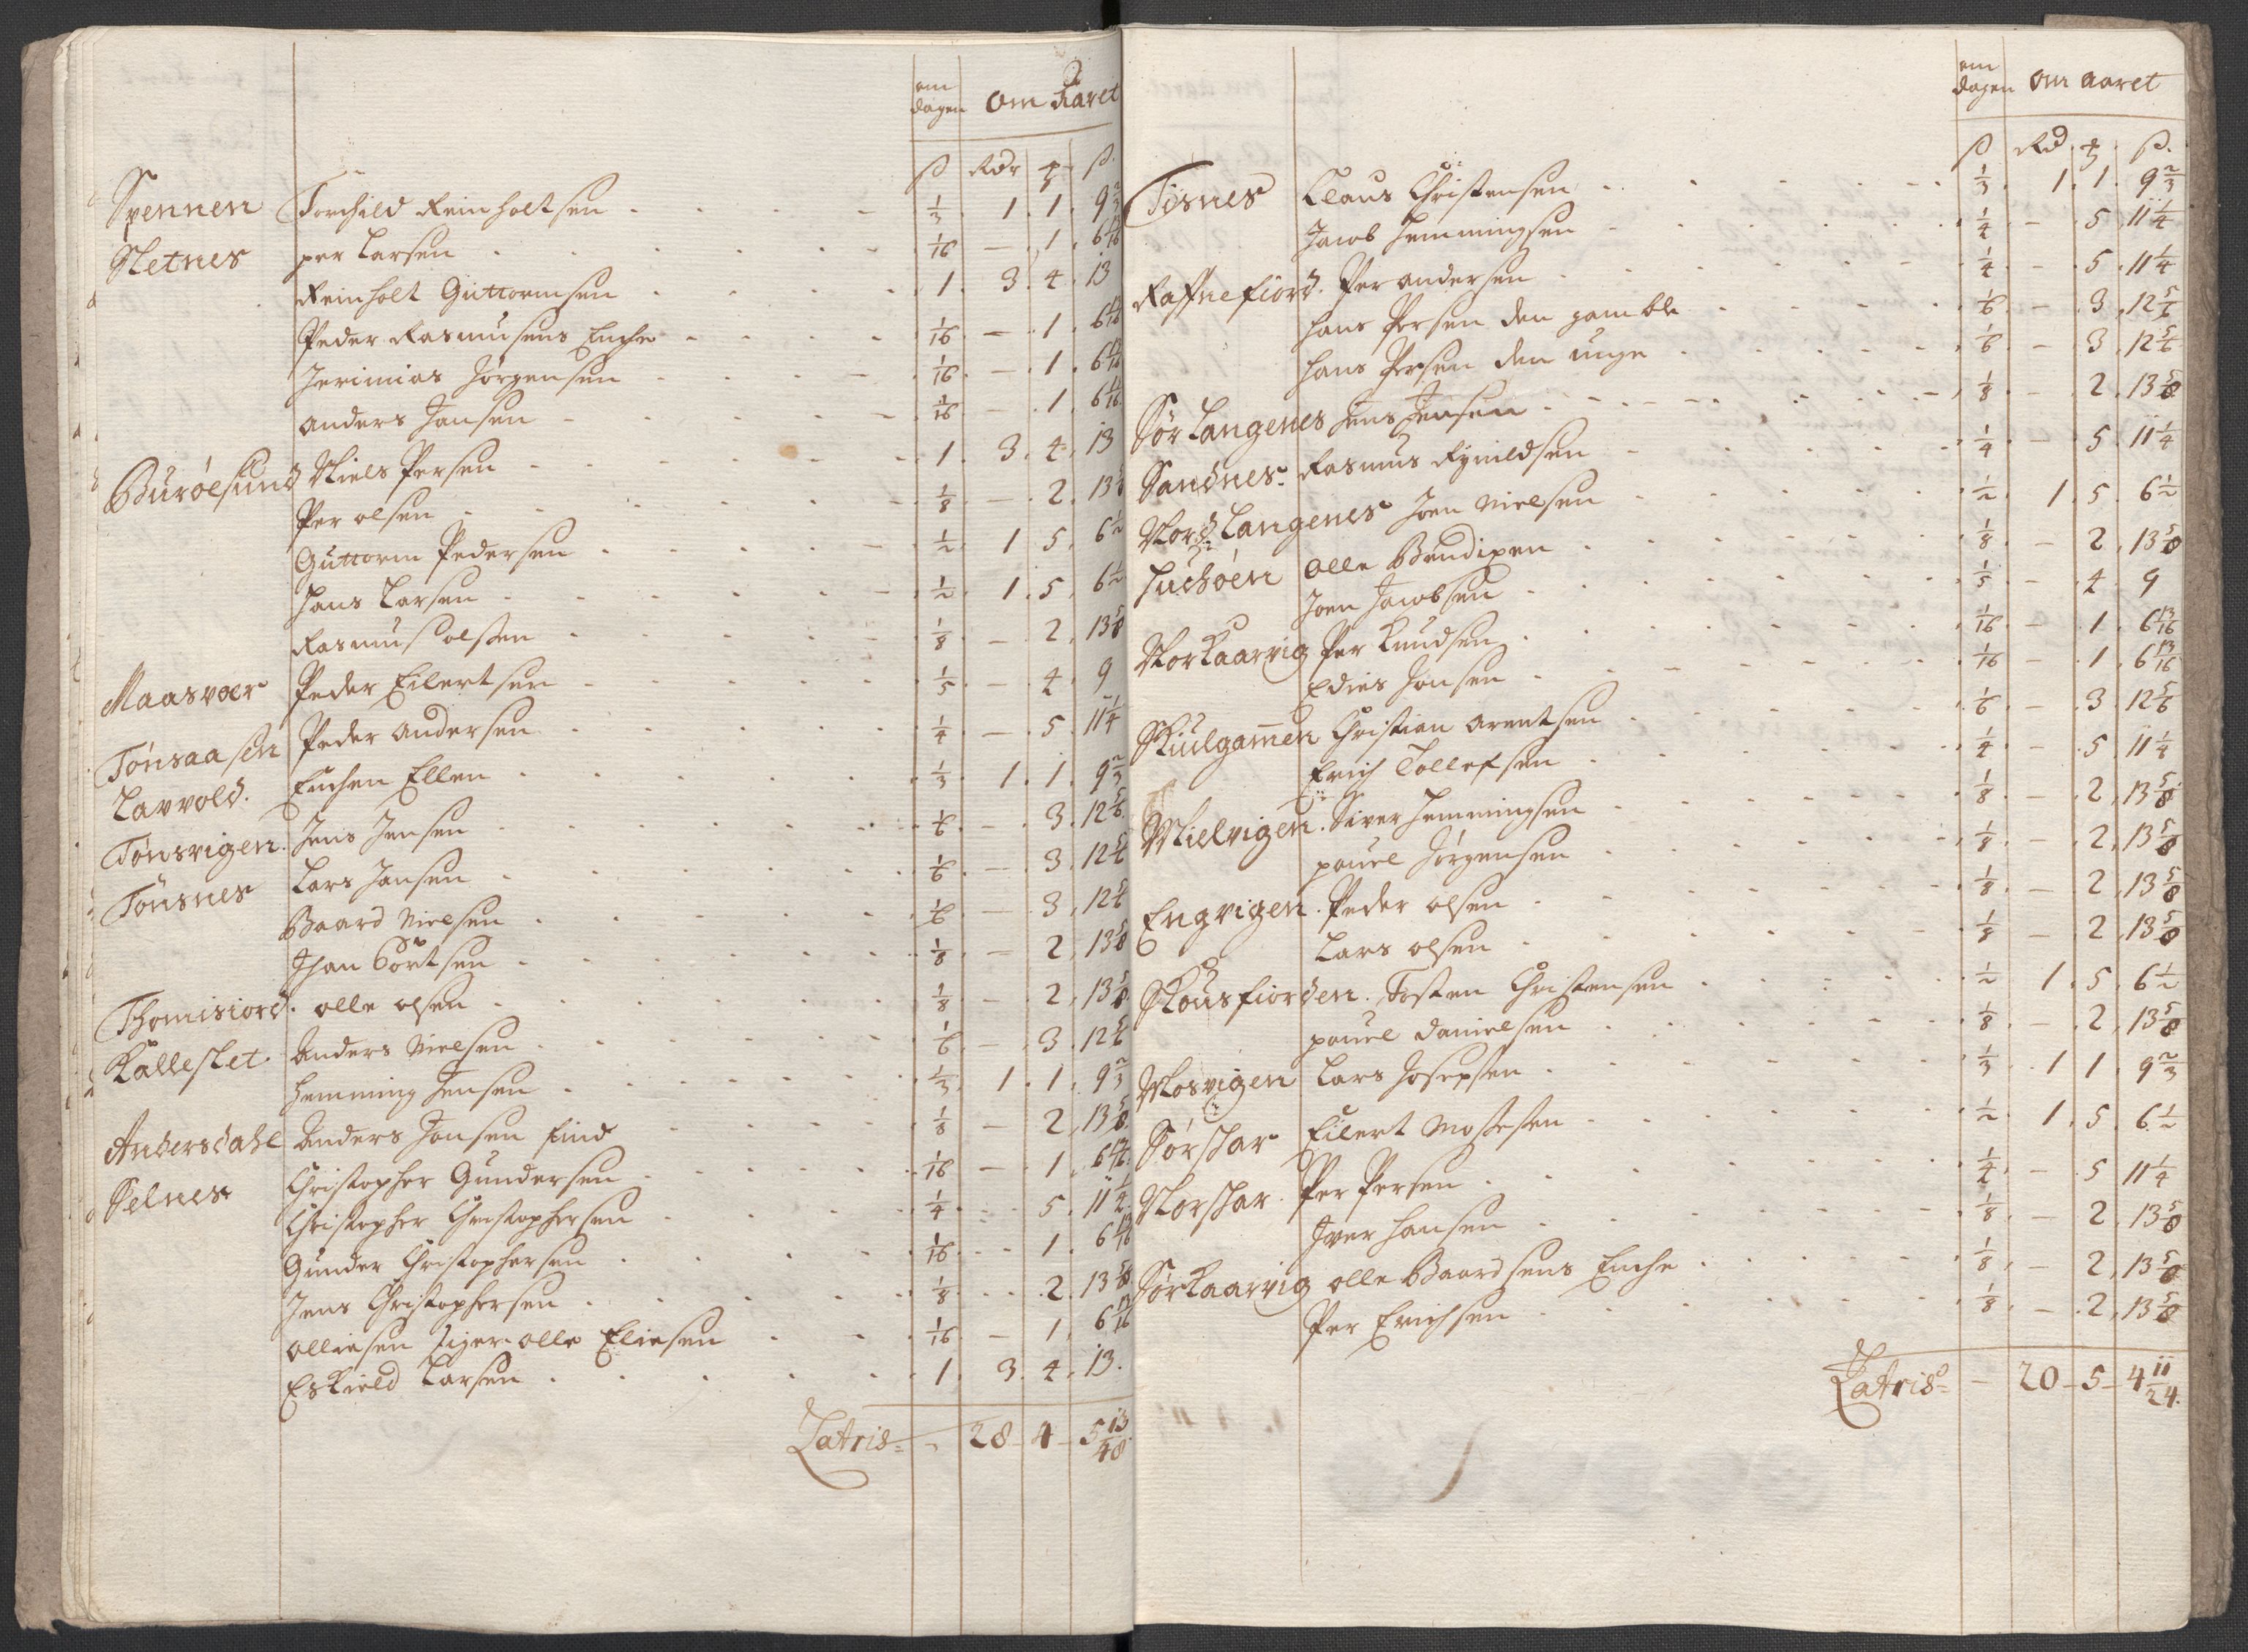 om
dagen om Aaret
ß Rdr ꝥ ß
Spennen Torchild Reinholtsen 1/3 1 1 9 2/3
Sletnes per Larsen 1/16 – 1 6 13/16
Reinholt Guttormsen 1 3 4 13
Peder Rasmusens Enche 1/16 – 1 6 13/16
Jerimias Jørgensen 1/16 – 1 6 13/16
Anders Jansen 1/16 – 1 6 13/16
Burøesund Niels Persen 1 3 4 13
Per olsen 1/8 – 2 13 5/8
Guttorm Pedersen 1/2 1 5 6 1/2
Hans Larsen 1/2 1 5 6 1/2
Rasmus olsen 1/8 – 2 13 5/8
Maasvoer Peder Eilertsen 1/5 – 4 9
Tønsaasen Peder Andersen 1/4 – 5 11 1/4
Lavvold. Enchen Ellen 1/3 1 1 9 2/3
Tønsvigen. Jens Jensen 1/6 – 3 12 5/6
Tønsnes Lars Jansen 1/6 – 3 12 5/6
Baard Nielsen 1/6 – 3 12 5/6
Jhan Sørtsen 1/8 – 2 13 5/8
Thomisiord. olle olsen 1/8 – 2 13 5/8
Kalleslet. Anders Nielsen 1/6 – 3 12 5/6
Hemming Jensen 1/3 1 1 9 2/3
Andersdahl Anders Jonsen find 1/8 – 2 13 5/8
Selnes Christopher Gundersen 1/16 – 1 6 13/16
Christopher Christophersen 1/4 – 5 11 1/4
Gunder Christophersen 1/16 – 1 6 13/16
Jens Christophersen 1/8 – 2 13 5/8
olliesen siger olle Eliesen 1/16 – 1 6 13/16
Eskield Larsen 1 3 4 13
Latris – 28 – 4 – 5 13/48
om
dagen om aaret
ß Rd ꝥ ß
Tisnes Claus Christensen 1/3 1 1 9 2/3
Jacob Hemmingsen 1/4 – 5 11 1/4
Raffnefiord. Per Andersen 1/4 – 5 11 1/4
Hans Persen den gamble 1/6 – 3 12 5/6
Hans Persen den unge 1/6 – 3 12 5/6
Sør Langenes Jens Jensen 1/8 – 2 13 5/8
Sandnes. Rasmus Rynildsen 1/4 – 5 11 1/4
Nord Langenes Joen Nielsen 1/2 1 5 6 1/2
Luchøen olle Bendixen 1/8 – 2 13 5/8
Joen Jacobsen 1/5 – 4 9
Norkaarvig Per Knudsen 1/16 – 1 6 13/16
Edies Jonsen 1/16 – 1 6 13/16
Skiulgamen Christian Arentsen 1/6 – 3 12 5/6
Erich Tollefsen 1/4 – 5 11 1/4
Mielvigen. Siver Hemmingsen 1/8 – 2 13 5/8
pouel Jørgensen 1/8 – 2 13 5/8
Engvigen. Peder olsen 1/8 – 2 13 5/8
Lars olsen 1/8 – 2 13 5/8
Skousfiorden. Tosten Christensen 1/2 1 5 6 1/2
pouel Danielsen 1/8 – 2 13 5/8
Mosvigen Lars Josepsen 1/3 1 1 9 2/3
Sørskar Eilert Mossesen 1/2 1 5 6 1/2
Norskar. Per Persen 1/4 – 5 11 1/4
Iver Hansen 1/8 – 2 13 5/8
Sørkaarvig olle Baardsens Enche 1/8 – 2 13 5/8
Per Erichsen 1/8 – 2 13 5/8
Latris – 20 – 5 – 4 11/24.